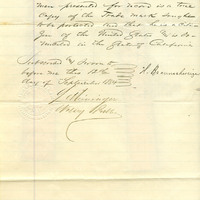 now presented for record is a true
Copy of the Trade Mark sought
to be protected and that he is a Citi-
zen of the United States & is do-
miciled in the State of California
Subscribed & Sworn to
before me this 12th
day of September
Notary Public